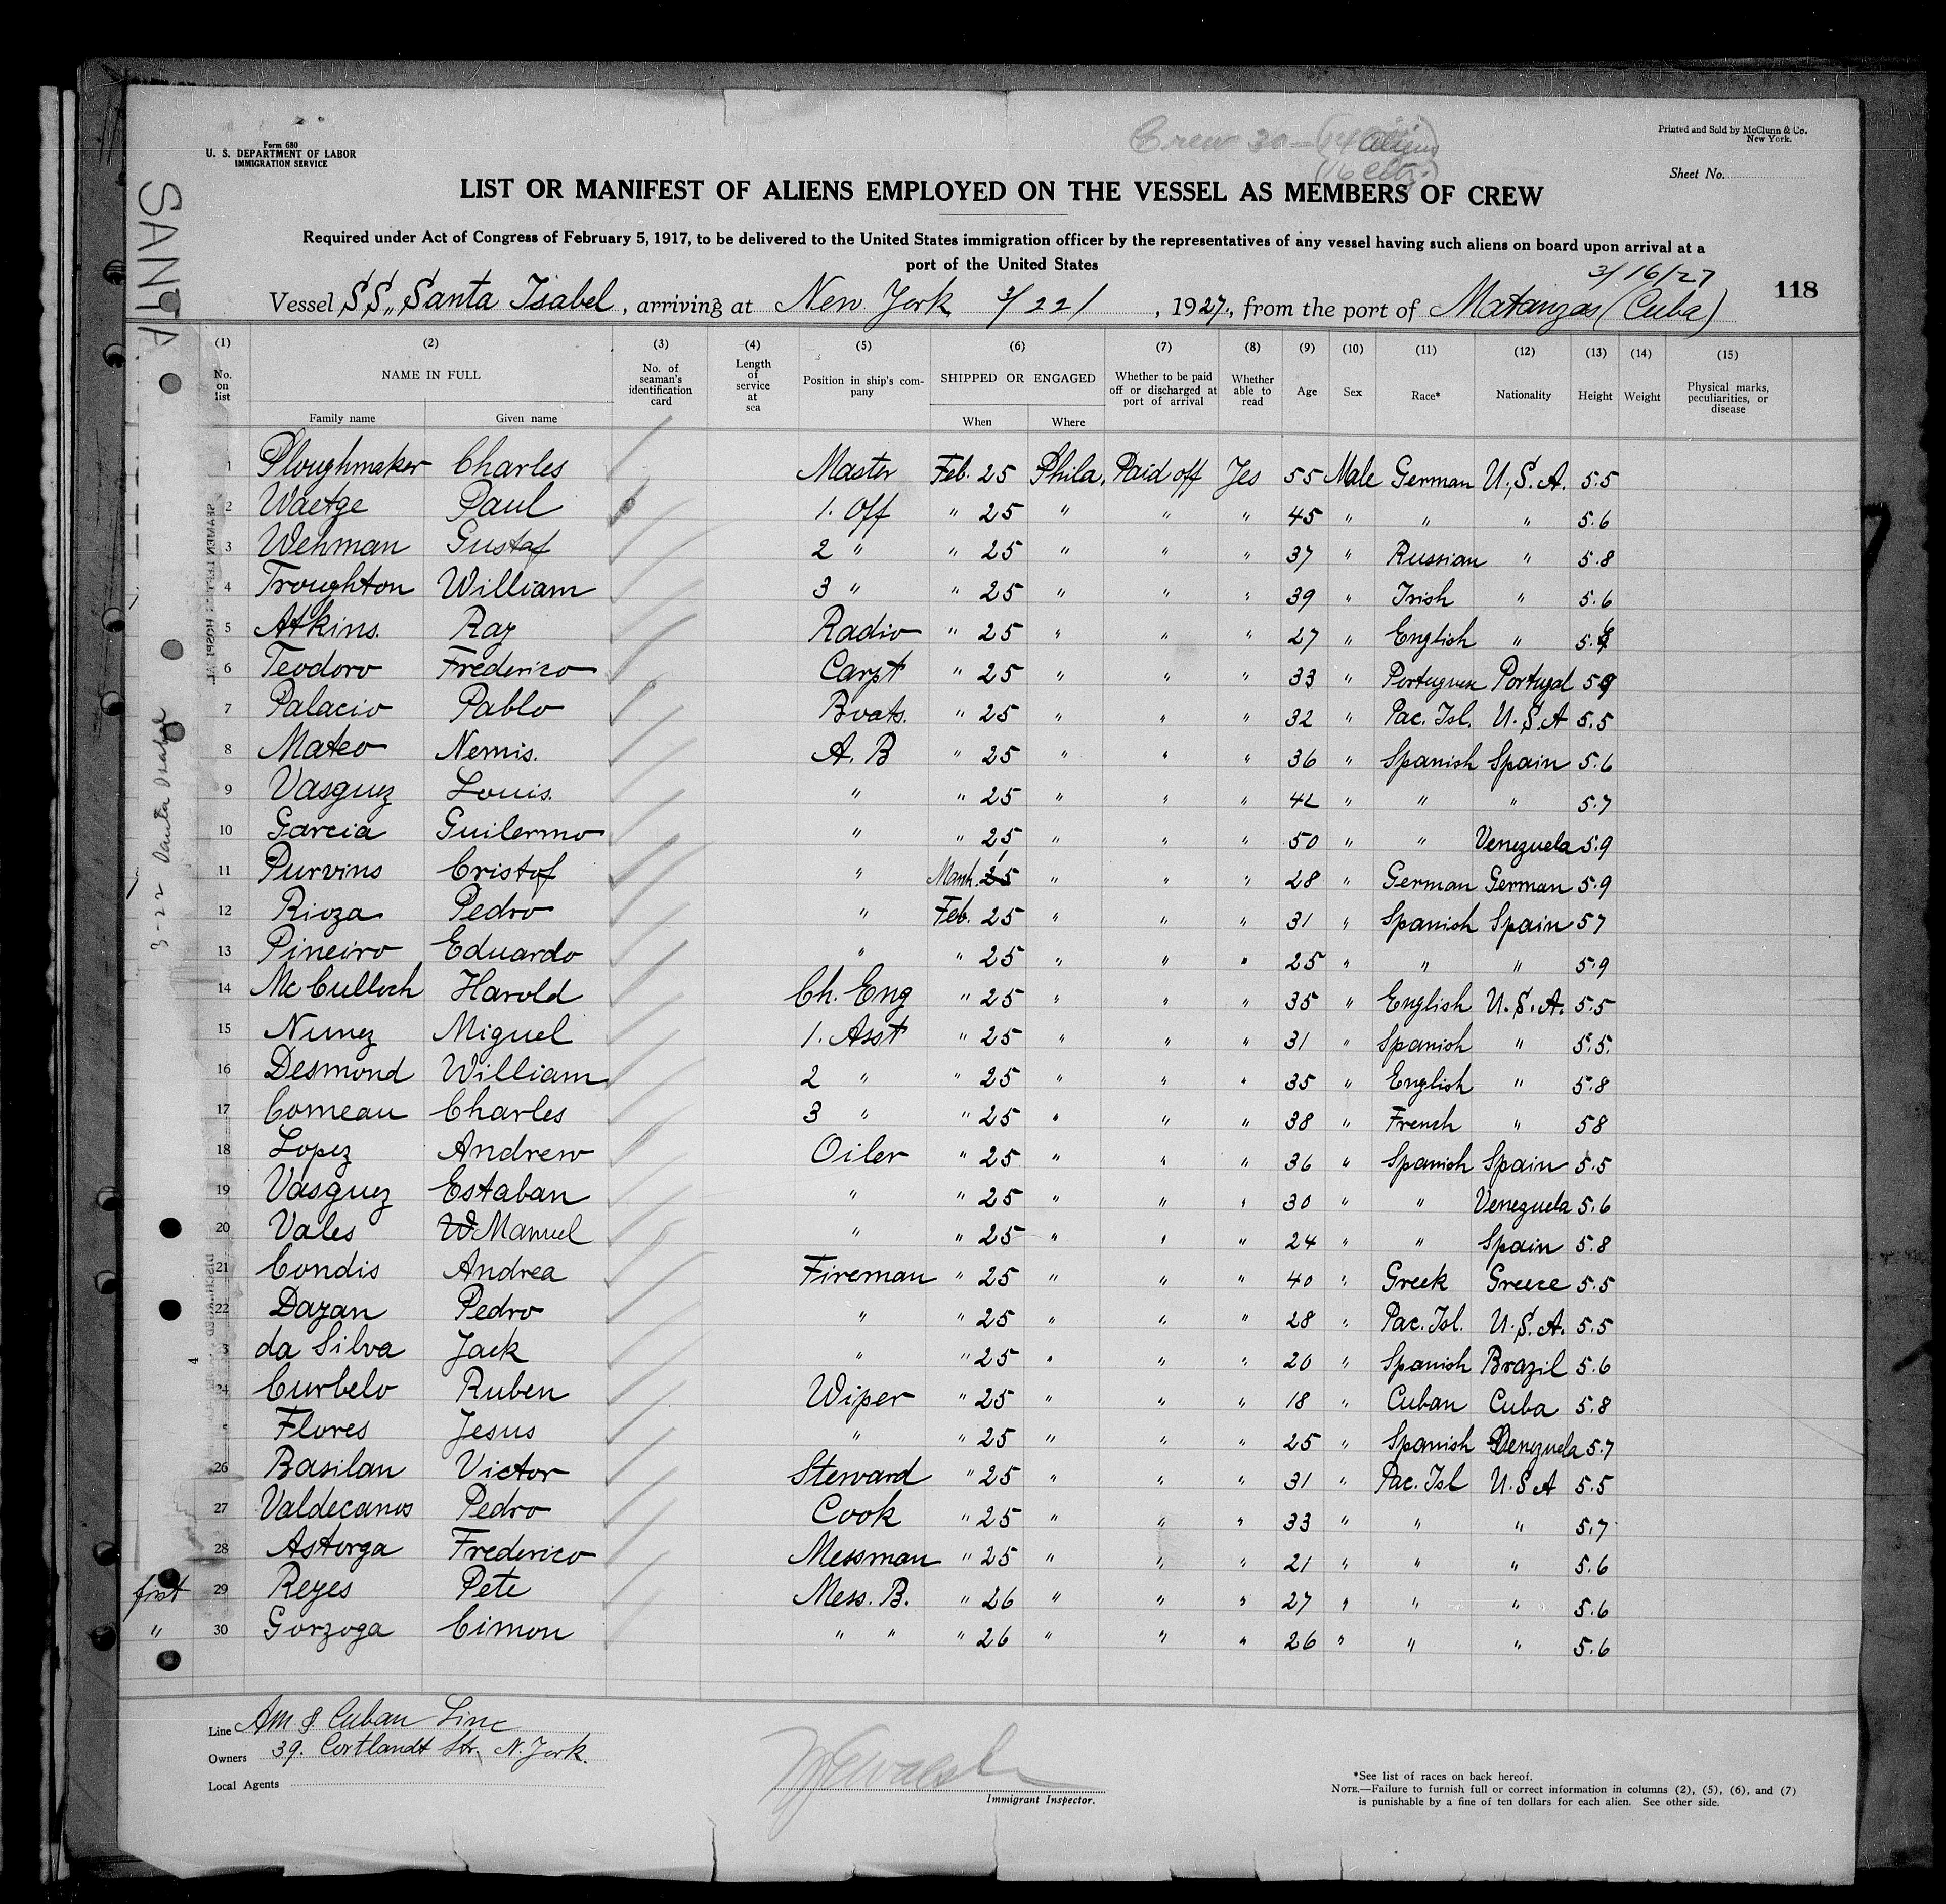 Form 680
U. S. DEPARTMENT OF LABOR
IMMIGRATION SERVICE
Crew 30 – (14 Aliens)
(16 Citz.)
Printed and Sold by McClunn & Co.
New York.
Sheet No.
SANTA
LIST OR MANIFEST OF ALIENS EMPLOYED ON THE VESSEL AS MEMBERS OF CREW
Required under Act of Congress of February 5, 1917, to be delivered to the United States immigration officer by the representatives of any vessel having such aliens on board upon arrival at a
port of the United States
3/16/27
Vessel S.S. „Santa Isabel, arriving at New York 3/22/, 1927, from the port of Matanzas (Cuba) 118
(1) (2) (3) (4) (5) (6) (7) (8) (9) (10) (11) (12) (13) (14) (15)
No. on list NAME IN FULL No. of seaman's identification card Length of service at sea Position in ship's company SHIPPED OR ENGAGED Whether to be paid off or discharged at port of arrival Whether able to read Age Sex Race* Nationality Height Weight Physical marks, peculiarities, or disease
Family name Given name When Where
1 Ploughmaker Charles Master Feb. 25 Phila, Paid off Yes 55 Male German U.S.A. 5.5
2 Waetge Paul 1. Off " 25 " " " 45 " " " 5.6
3 Wehman Gustaf 2 " " 25 " " " 37 " Russian " 5.8
4 Troughton William 3 " " 25 " " " 39 " Irish " 5.6
5 Atkins. Ray Radio " 25 " " " 27 " English " 5.
6 Teodoro Frederico Carpt " 25 " " " 33 " Portuguese Portugal 59
7 Palacio Pablo Boats. " 25 " " " 32 " Pac. Isl. U.S.A 5.5
8 Mateo Nemis. A. B " 25 " " " 36 " Spanish Spain 5.6
9 Vasguez Louis. " " 25 " " " 42 " " " 5.7
10 Garcia Guilermo " " 25 " " " 50 " " Venezuela 5.9
11 Purvins Cristof " March. 1 " " " 28 " German German 5.9
12 Rioza Pedro " Feb. 25 " " " 31 " Spanish Spain 57
13 Pineiro Eduardo " " 25 " " " 25 " " " 5.9
14 McCulloch Harold Ch. Eng " 25 " " " 35 " English U.S.A. 5.5
15 Nunez Miguel 1. Asst " 25 " " " 31 " Spanish " 5.5.
16 Desmond William 2 " " 25 " " " 35 " English " 5.8
17 Comeau Charles 3 " " 25 " " " 38 " French " 58
18 Lopez Andrew Oiler " 25 " " " 36 " Spanish Spain 5.5
19 Vasguez Estaban " " 25 " " " 30 " " Venezuela 5.6
20 Vales W Manuel " " 25 " " " 24 " " Spain 5.8
21 Condis Andrea Fireman " 25 " " " 40 " Greek Greece 5.5
22 Dazan Pedro " " 25 " " " 28 " Pac. Isl. U.S.A. 5.5
3 da Silva Jack " " 25 " " " 20 " Spanish Brazil 5.6
24 Curbelo Ruben Wiper " 25 " " " 18 " Cuban Cuba 5.8
5 Flores Jesus " " 25 " " " 25 " Spanish Venezuela 5.7
26 Basilan Victor Steward " 25 " " " 31 " Pac. Isl U.S.A 5.5
27 Valdecanos Pedro Cook " 25 " " " 33 " " " 5.7
28 Astorga Frederico Messman " 25 " " " 21 " " " 5.6
first 29 Reyes Pete Mess. B. " 26 " " " 27 " " " 5.6
" 30 Gorzoga Cimon " " " 26 " " " 26 " " " 5.6
Line Am & Cuban Line
Owners 39. Cortlandt Str. N. York.
Local Agents
Immigrant Inspector.
*See list of races on back hereof.
NOTE.—Failure to furnish full or correct information in columns (2), (5), (6), and (7)
is punishable by a fine of ten dollars for each alien. See other side.
3-22 Santa Isabel